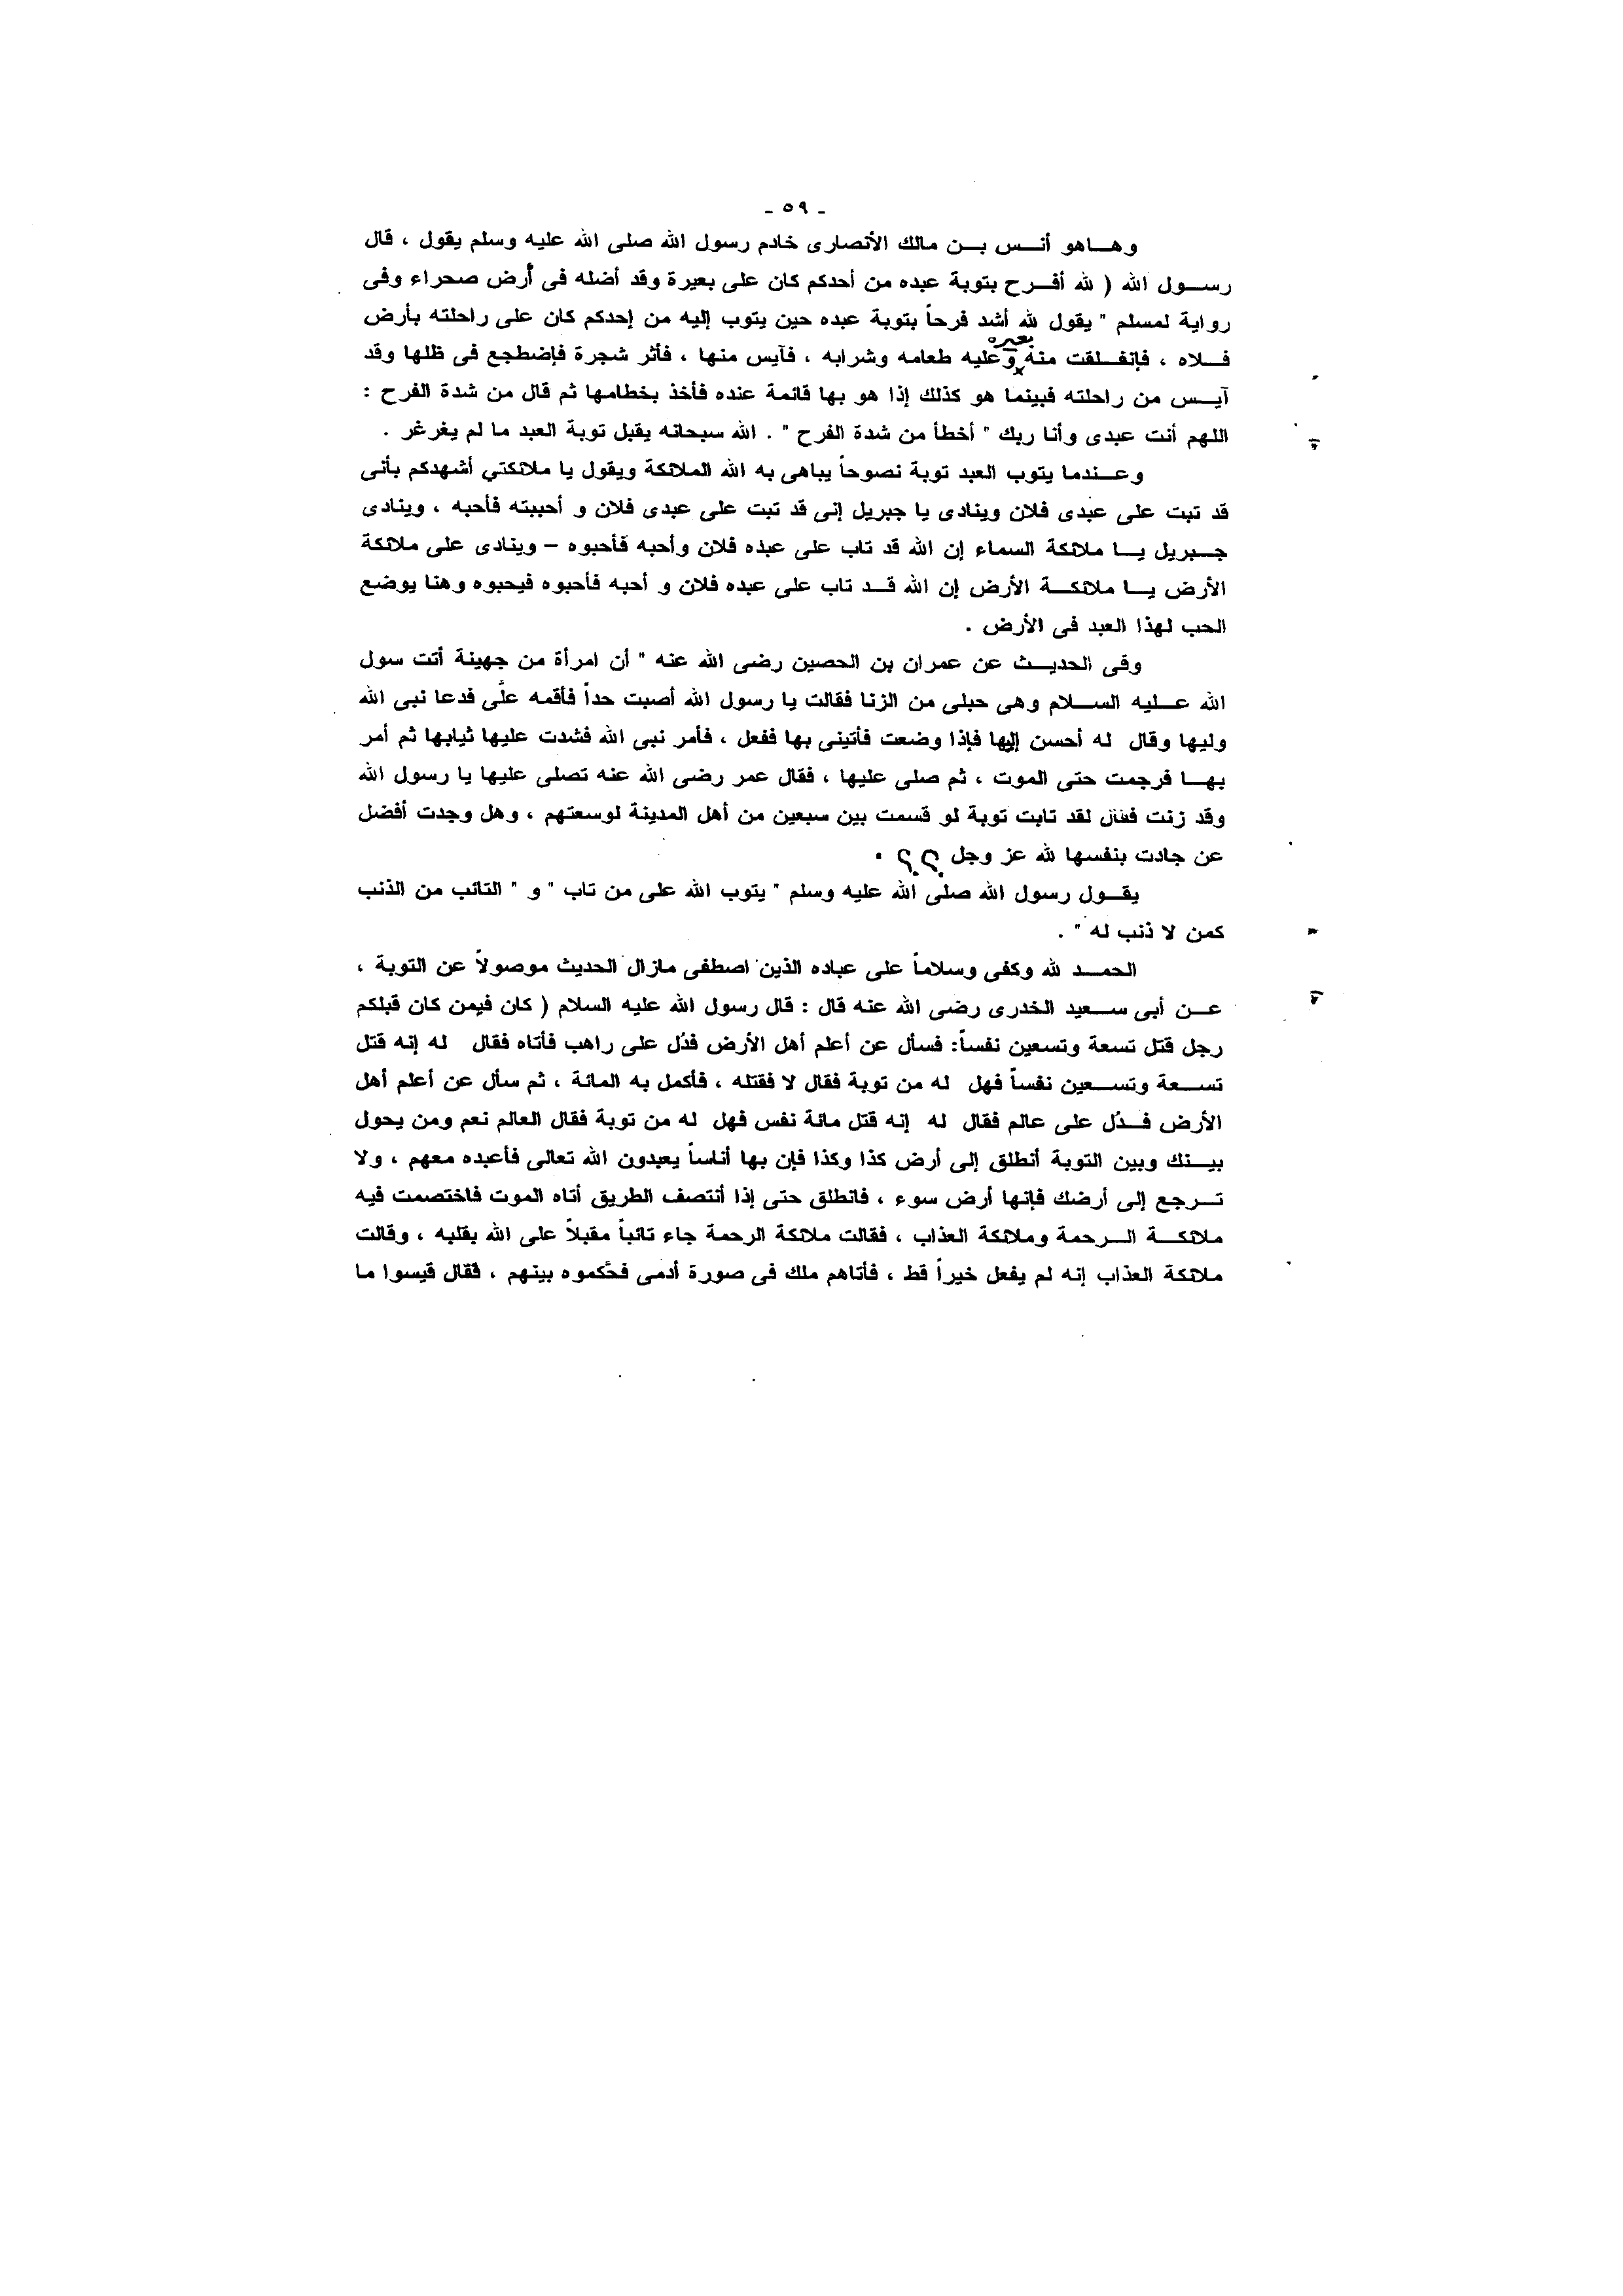 - ٥٩ -
وهـاهو أنـس بـن مالك الأنصارى خادم رسول الله صلى الله عليه وسلم يقول ، قال
رسـول الله ( لله أفـرح بتوبة عبده من أحدكم كان على بعيرة وقد أضله فى أرض صحراء وفى
رواية لمسلم " يقول لله أشد فرحاً بتوبة عبده حين يتوب إليه من إحدكم كان على راحلته بأرض
بعيره
فـلاه ، فإنفـلقت منه وعليه طعامه وشرابه ، فآيس منها ، فأثر شجرة فإضطجع فى ظلها وقد
آيـس من راحلته فبينما هو كذلك إذا هو بها قائمة عنده فأخذ بخطامها ثم قال من شدة الفرح :
اللهم أنت عبدى وأنا ربك " أخطأ من شدة الفرح " . الله سبحانه يقبل توبة العبد ما لم يغرغر .
وعـندما يتوب العبد توبة نصوحاً يباهى به الله الملائكة ويقول يا ملائكتي أشهدكم بأنى
قد تبت على عبدى فلان وينادى يا جبريل إنى قد تبت على عبدى فلان و أحببته فأحبه ، وينادى
جـبريل يـا ملائكة السماء إن الله قد تاب على عبده فلان وأحبه فأحبوه – وينادى على ملائكة
الأرض يـا ملائكـة الأرض إن الله قـد تاب على عبده فلان و أحبه فأحبوه فيحبوه وهنا يوضع
الحب لهذا العبد فى الأرض .
وفى الحديـث عن عمران بن الحصين رضى الله عنه " أن امرأة من جهينة أتت سول
الله عـليه السـلام وهى حبلى من الزنا فقالت يا رسول الله أصبت حداً فأقمه علَّى فدعا نبى الله
وليها وقال له أحسن إليها فإذا وضعت فأتينى بها ففعل ، فأمر نبى الله فشدت عليها ثيابها ثم أمر
بهـا فرجمت حتى الموت ، ثم صلى عليها ، فقال عمر رضى الله عنه تصلى عليها يا رسول الله
وقد زنت فقال لقد تابت توبة لو قسمت بين سبعين من أهل المدينة لوسعتهم ، وهل وجدت أفضل
عن جادت بنفسها لله عز وجل ؟؟ .
يقـول رسول الله صلى الله عليه وسلم " يتوب الله على من تاب " و " التائب من الذنب
كمن لا ذنب له " .
الحمـد لله وكفى وسلاماً على عباده الذين اصطفى مازال الحديث موصولاً عن التوبة ،
عـن أبى سـعيد الخدرى رضى الله عنه قال : قال رسول الله عليه السلام ( كان فيمن كان قبلكم
رجل قتل تسعة وتسعين نفساً: فسأل عن أعلم أهل الأرض فدُل على راهب فأتاه فقال له إنه قتل
تسـعة وتسـعين نفساً فهل له من توبة فقال لا فقتله ، فأكمل به المائة ، ثم سأل عن أعلم أهل
الأرض فـدُل على عالم فقال له إنه قتل مائة نفس فهل له من توبة فقال العالم نعم ومن يحول
بيـنك وبين التوبة أنطلق إلى أرض كذا وكذا فإن بها أناساً يعبدون الله تعالى فأعبده معهم ، ولا
تـرجع إلى أرضك فإنها أرض سوء ، فانطلق حتى إذا أنتصف الطريق أتاه الموت فاختصمت فيه
ملائكـة الـرحمة وملائكة العذاب ، فقالت ملائكة الرحمة جاء تائباً مقبلاً على الله بقلبه ، وقالت
ملائكة العذاب إنه لم يفعل خيراً قط ، فأتاهم ملك فى صورة أدمى فحُكموه بينهم ، فقال قيسوا ما